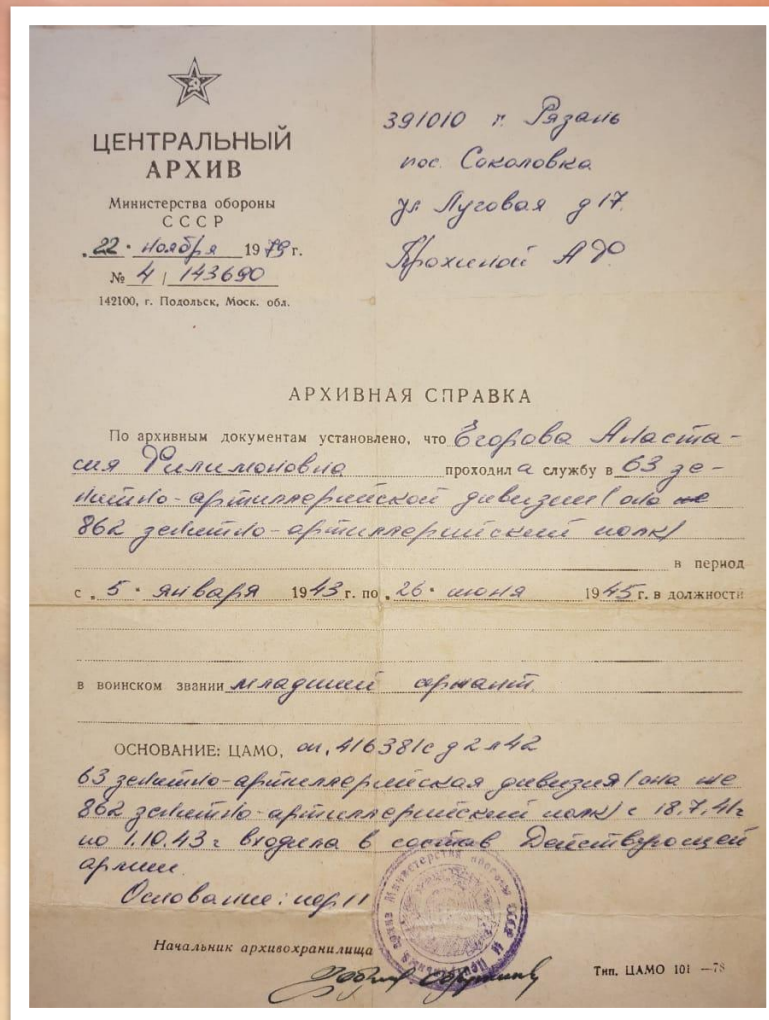 ЦЕНТРАЛЬНЫЙ
АРХИВ
Министерства обороны
СССР
„22“ ноября 1979 г.
№ 4 / 143690
142100, г. Подольск, Моск. обл.
391010 г. Рязань
пос. Соколовка
ул Луговая д 17.
Трохиной А Ф
АРХИВНАЯ СПРАВКА
По архивным документам установлено, что Егорова Анаста-
сия Филимоновна проходила службу в 63 зе-
нитно-артиллерийской дивизии (она же
862 зенитно-артиллерийский полк)
в период
с „5“ января 1943 г. по „26“ июня 1945 г. в должности
в воинском звании младший сержант.
ОСНОВАНИЕ: ЦАМО, оп. 416381с д 2 л 42
63 зенитно-артиллерийская дивизия (она же
862 зенитно-артиллерийский полк) с 18.7.41г
по 1.10.43 г входила в состав Действующей
армии.
Основание: пер 11
Министерства обороны СССР
Начальник архивохранилища
Тип. ЦАМО 101 —78